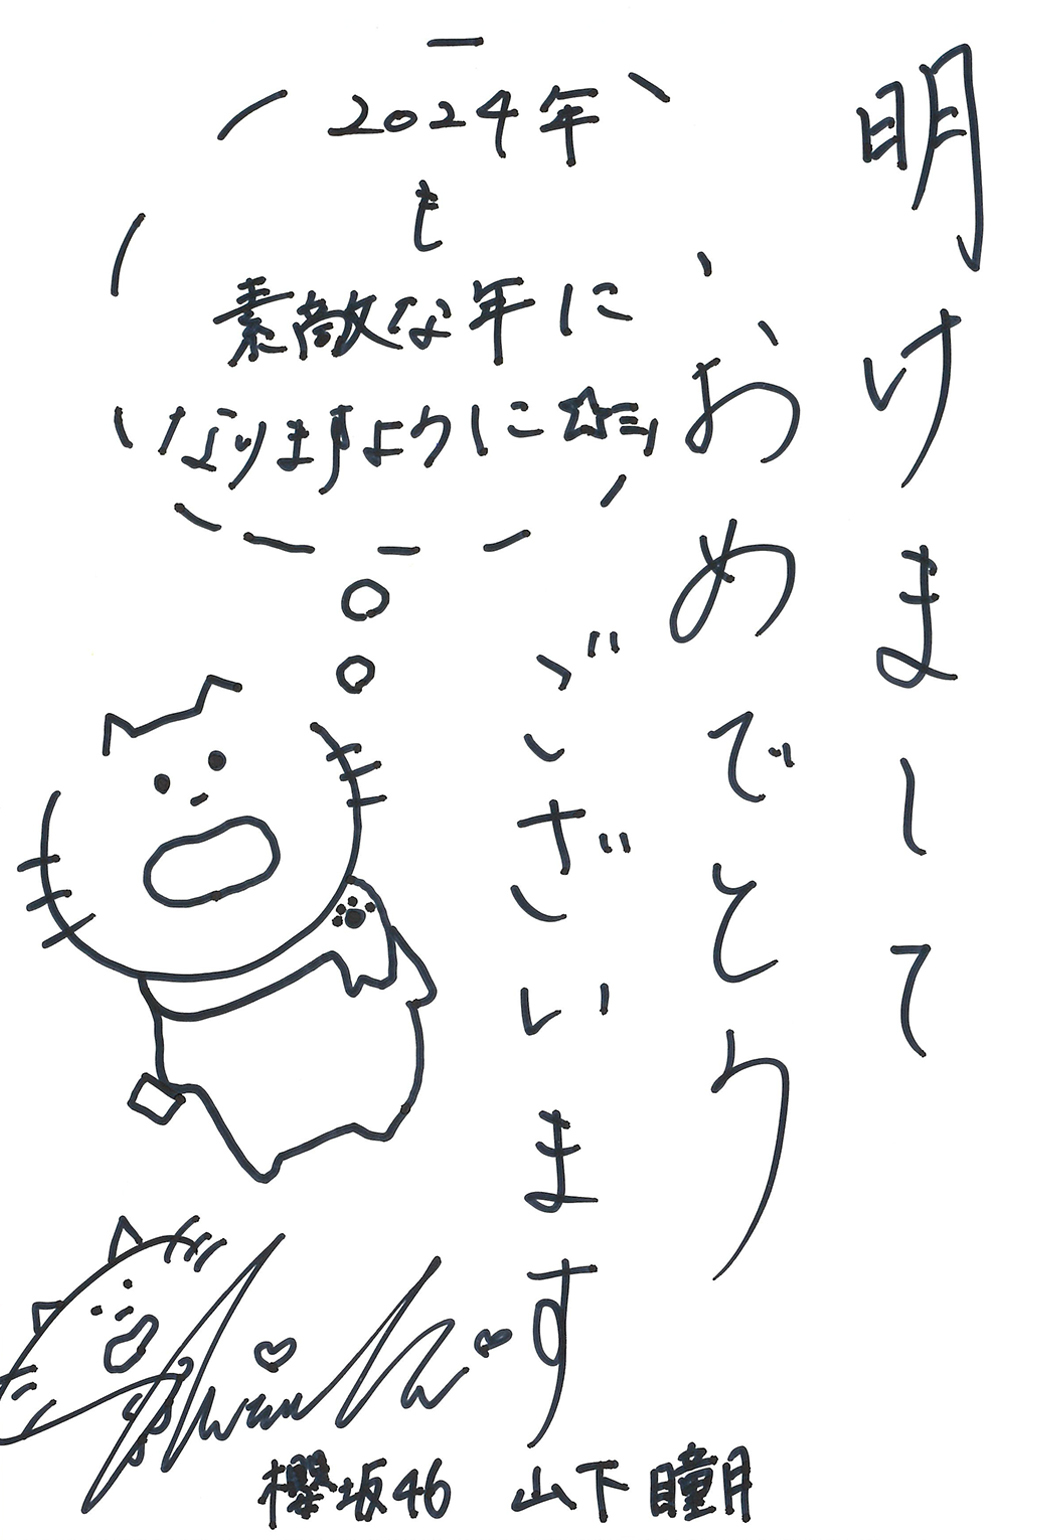 明けまして
おめでとう
ございます
2024年
も
素敵な年に
なりますように☆彡
櫻坂46 山下瞳月